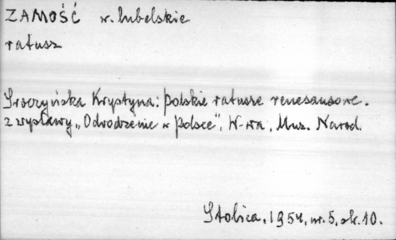 ZAMOŚĆ w. lubelskie
ratusz
Sroczyńska Krystyna: Polskie ratusze renesansowe.
z wystawy „Odrodzenie w Polsce", W-wa, Muz. Narod.
Stolica, 1954, nr. 5, str. 10.